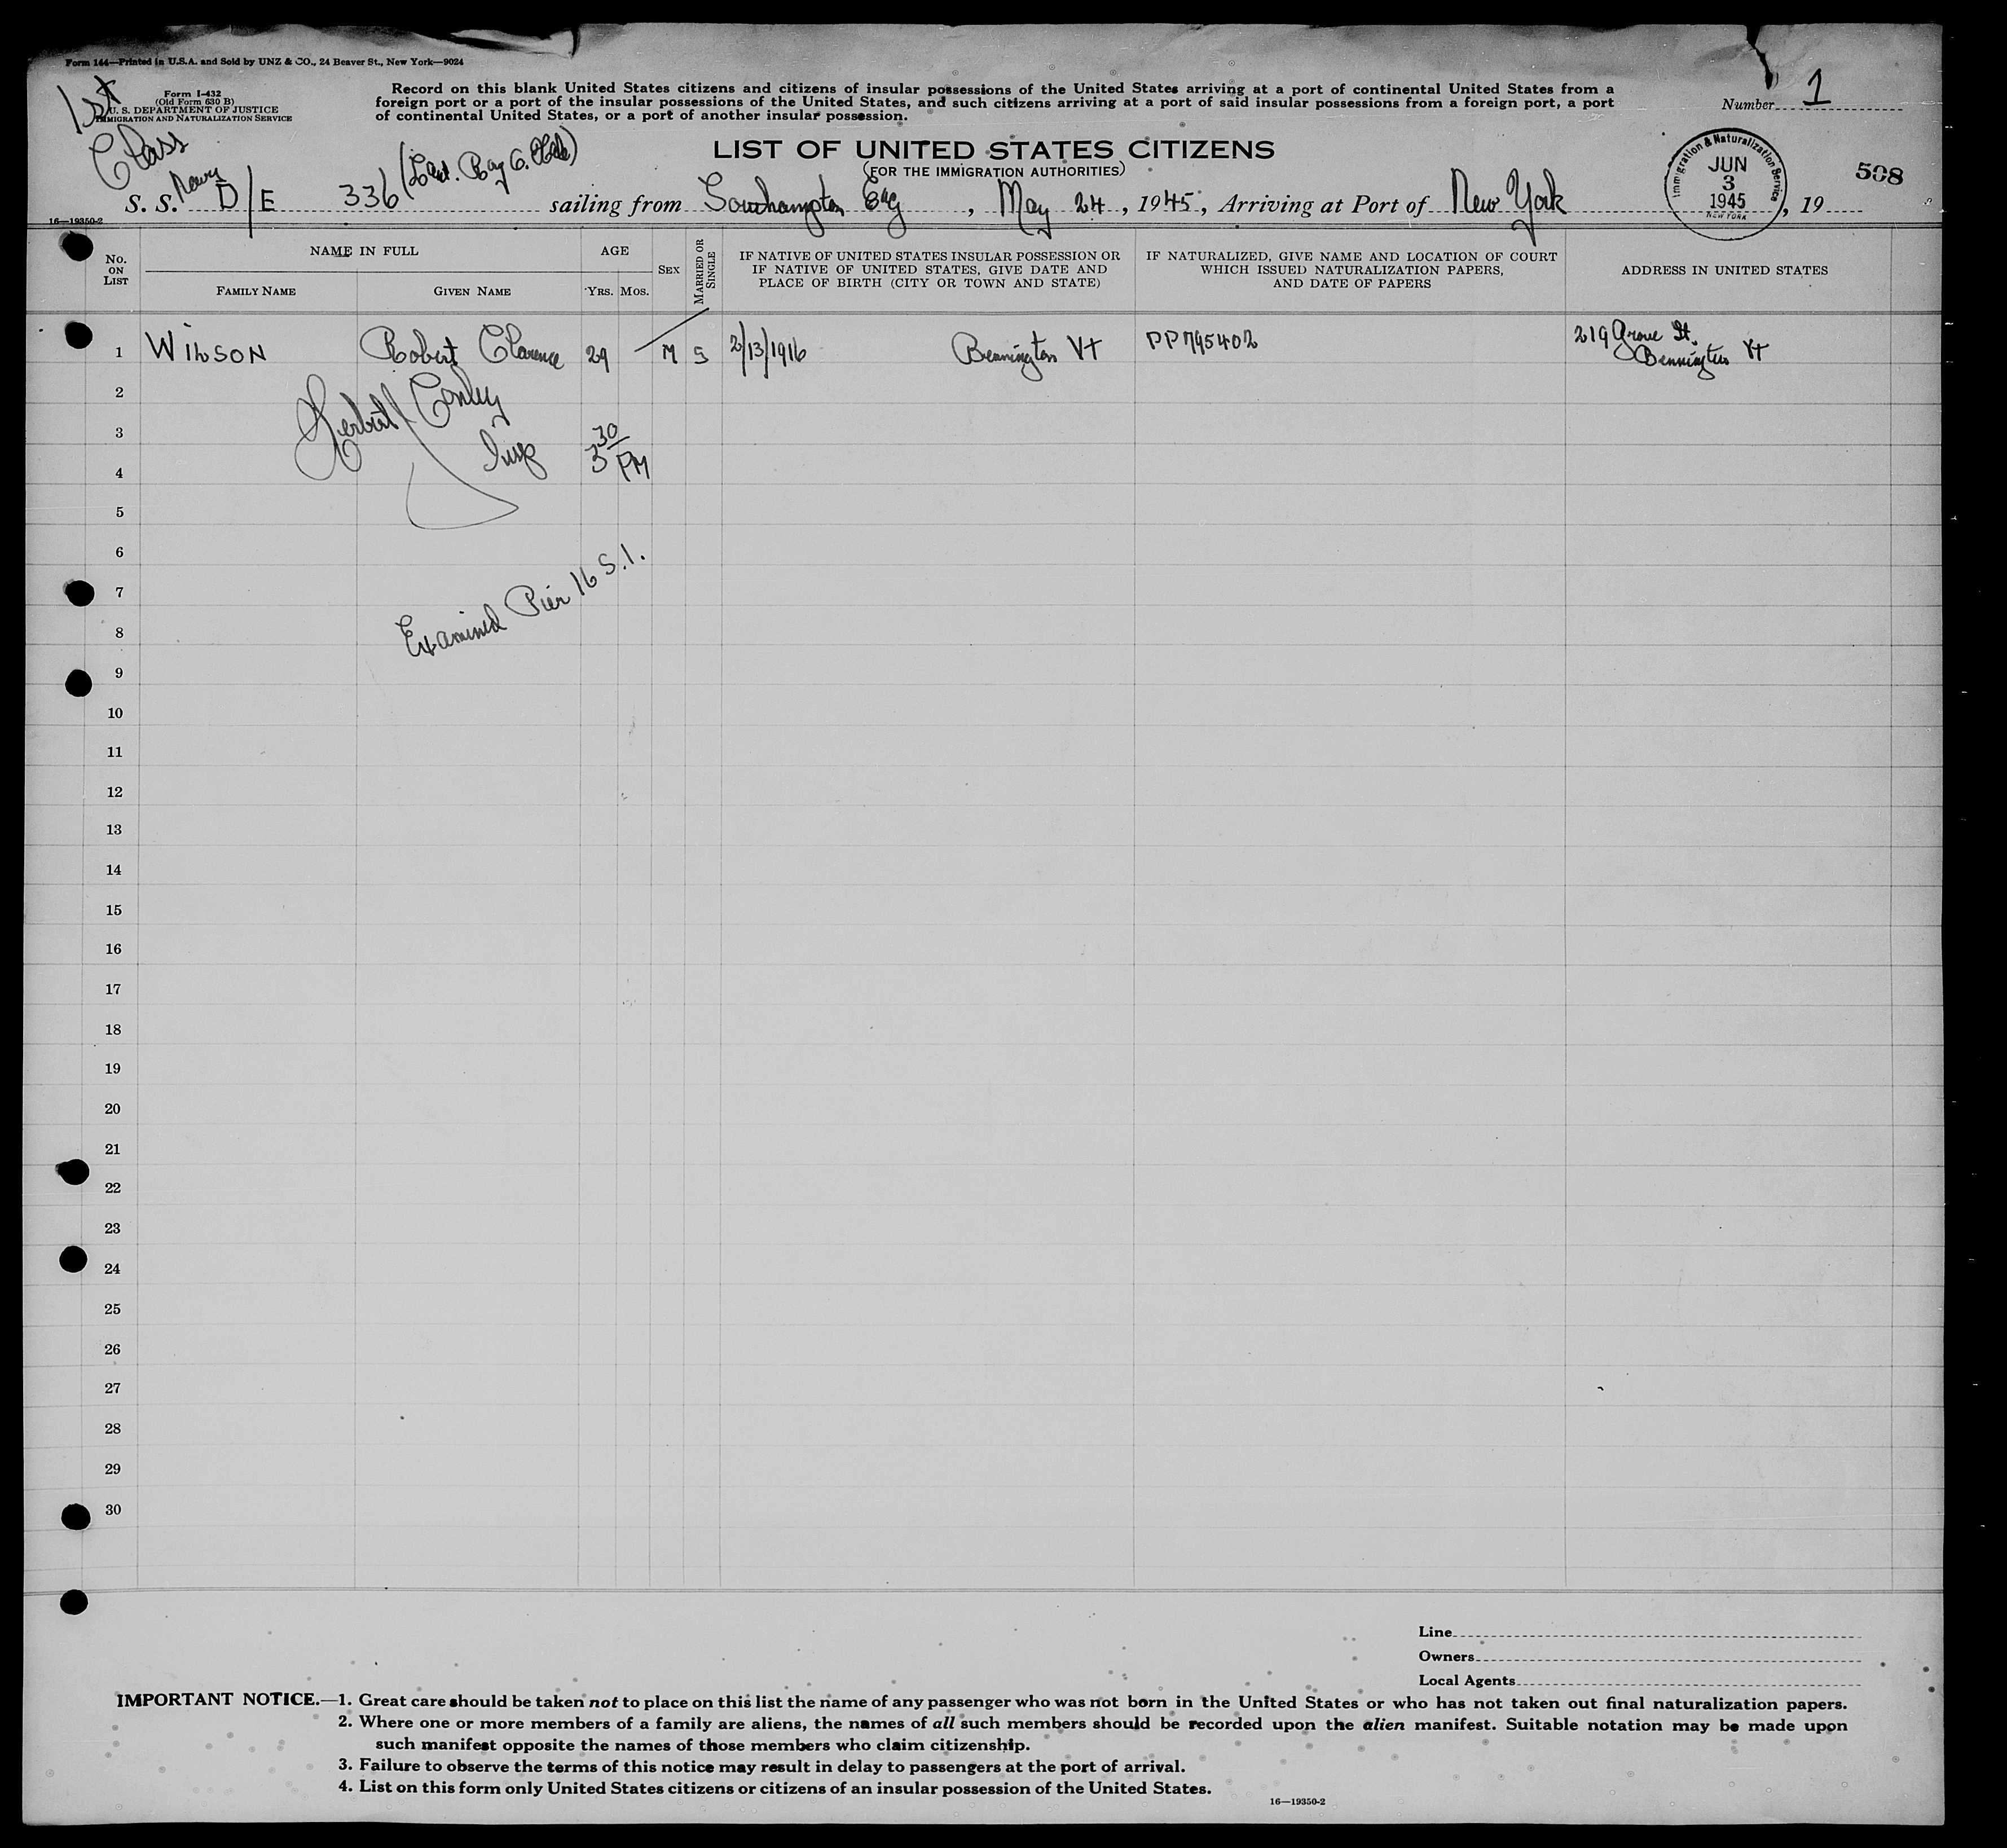 Form 144—Printed in U.S.A. and Sold by UNZ & CO., 24 Beaver St., New York—9024
1st
Class
Form I-432
(Old Form 630 B)
U. S. DEPARTMENT OF JUSTICE
IMMIGRATION AND NATURALIZATION SERVICE
Record on this blank United States citizens and citizens of insular possessions of the United States arriving at a port of continental United States from a
foreign port or a port of the insular possessions of the United States, and such citizens arriving at a port of said insular possessions from a foreign port, a port
of continental United States, or a port of another insular possession.
Number 1
LIST OF UNITED STATES CITIZENS
(FOR THE IMMIGRATION AUTHORITIES)
Immigration & Naturalization Service
JUN
3
1945
NEW YORK
508
(Ray O.
S. S. Navy D/E 336 sailing from Southampton Eng, May 24, 1945, Arriving at Port of New York, 19
16—19350-2
No. ON LIST
NAME IN FULL
FAMILY NAME
GIVEN NAME
AGE
YRS. MOS.
SEX
MARRIED OR SINGLE
IF NATIVE OF UNITED STATES INSULAR POSSESSION OR
IF NATIVE OF UNITED STATES, GIVE DATE AND
PLACE OF BIRTH (CITY OR TOWN AND STATE)
IF NATURALIZED, GIVE NAME AND LOCATION OF COURT
WHICH ISSUED NATURALIZATION PAPERS,
AND DATE OF PAPERS
ADDRESS IN UNITED STATES
1 WILSON Robert Clarence 29 M S 2/13/1916 Bennington Vt PP 795402 219 Grove St.
Bennington Vt
2
Herbert Conley
3
Insp 3 30 PM
4
5
6
7
Examined Pier 16 S.I.
8
9
10
11
12
13
14
15
16
17
18
19
20
21
22
23
24
25
26
27
28
29
30
Line
Owners
Local Agents
IMPORTANT NOTICE.—1. Great care should be taken not to place on this list the name of any passenger who was not born in the United States or who has not taken out final naturalization papers.
2. Where one or more members of a family are aliens, the names of all such members should be recorded upon the alien manifest. Suitable notation may be made upon
such manifest opposite the names of those members who claim citizenship.
3. Failure to observe the terms of this notice may result in delay to passengers at the port of arrival.
4. List on this form only United States citizens or citizens of an insular possession of the United States.
16—19350-2